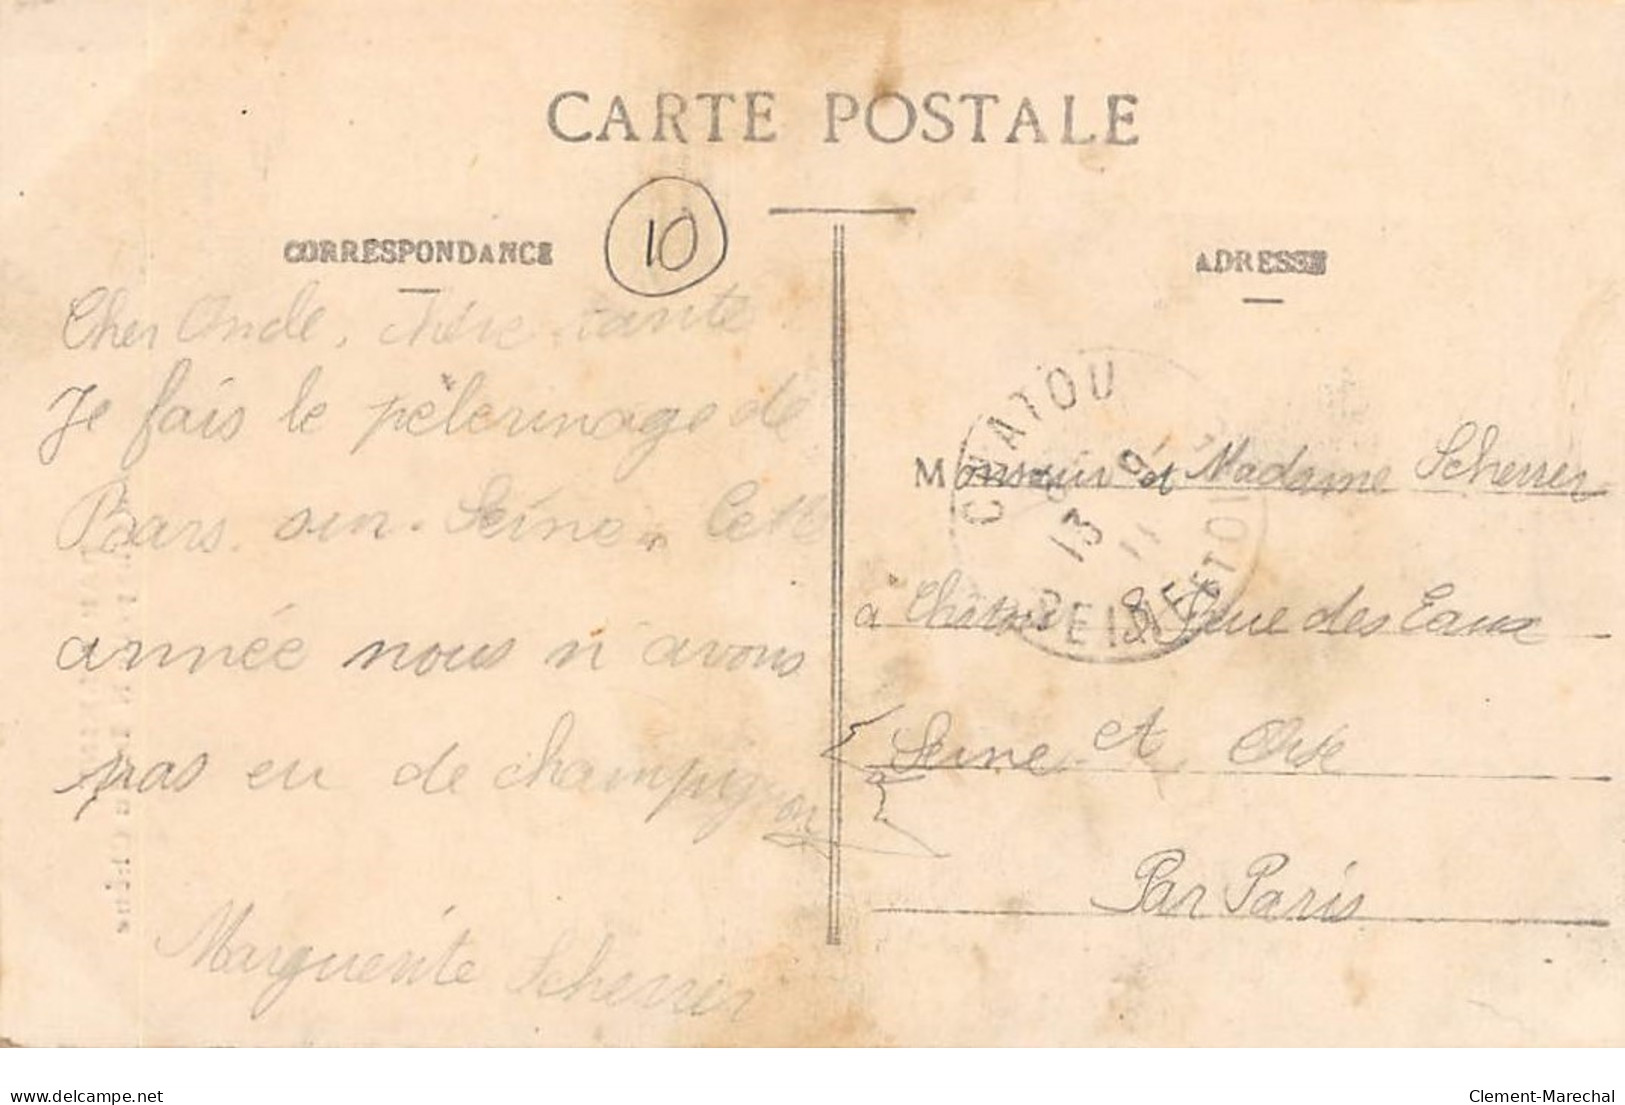 CARTE POSTALE
CORRESPONDANCE
10
Cher Oncle, chère tante
Je fais le pèlerinage de
Bars. sur. Seine. Cette
année nous n'avons
pas eu de champignon
Marguerite Scherrer
ADRESSE
CHATOU
13 9
11
SEINE ET OI
Monsieur et Madame Scherrer
à 8 Rue des Eaux
Seine et Oise
Par Paris
delcampe.net
Clement-Marechal